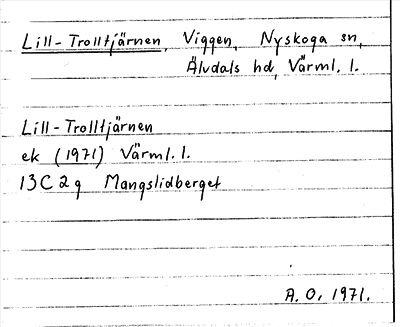 Lill-Trolltjärnen, Viggen, Nyskoga sn,
Älvdals hd, Värml. l.
Lill-Trolltjärnen
ek (1971) Värml. l.
13C 2g Mangslidberget
A. O. 1971.